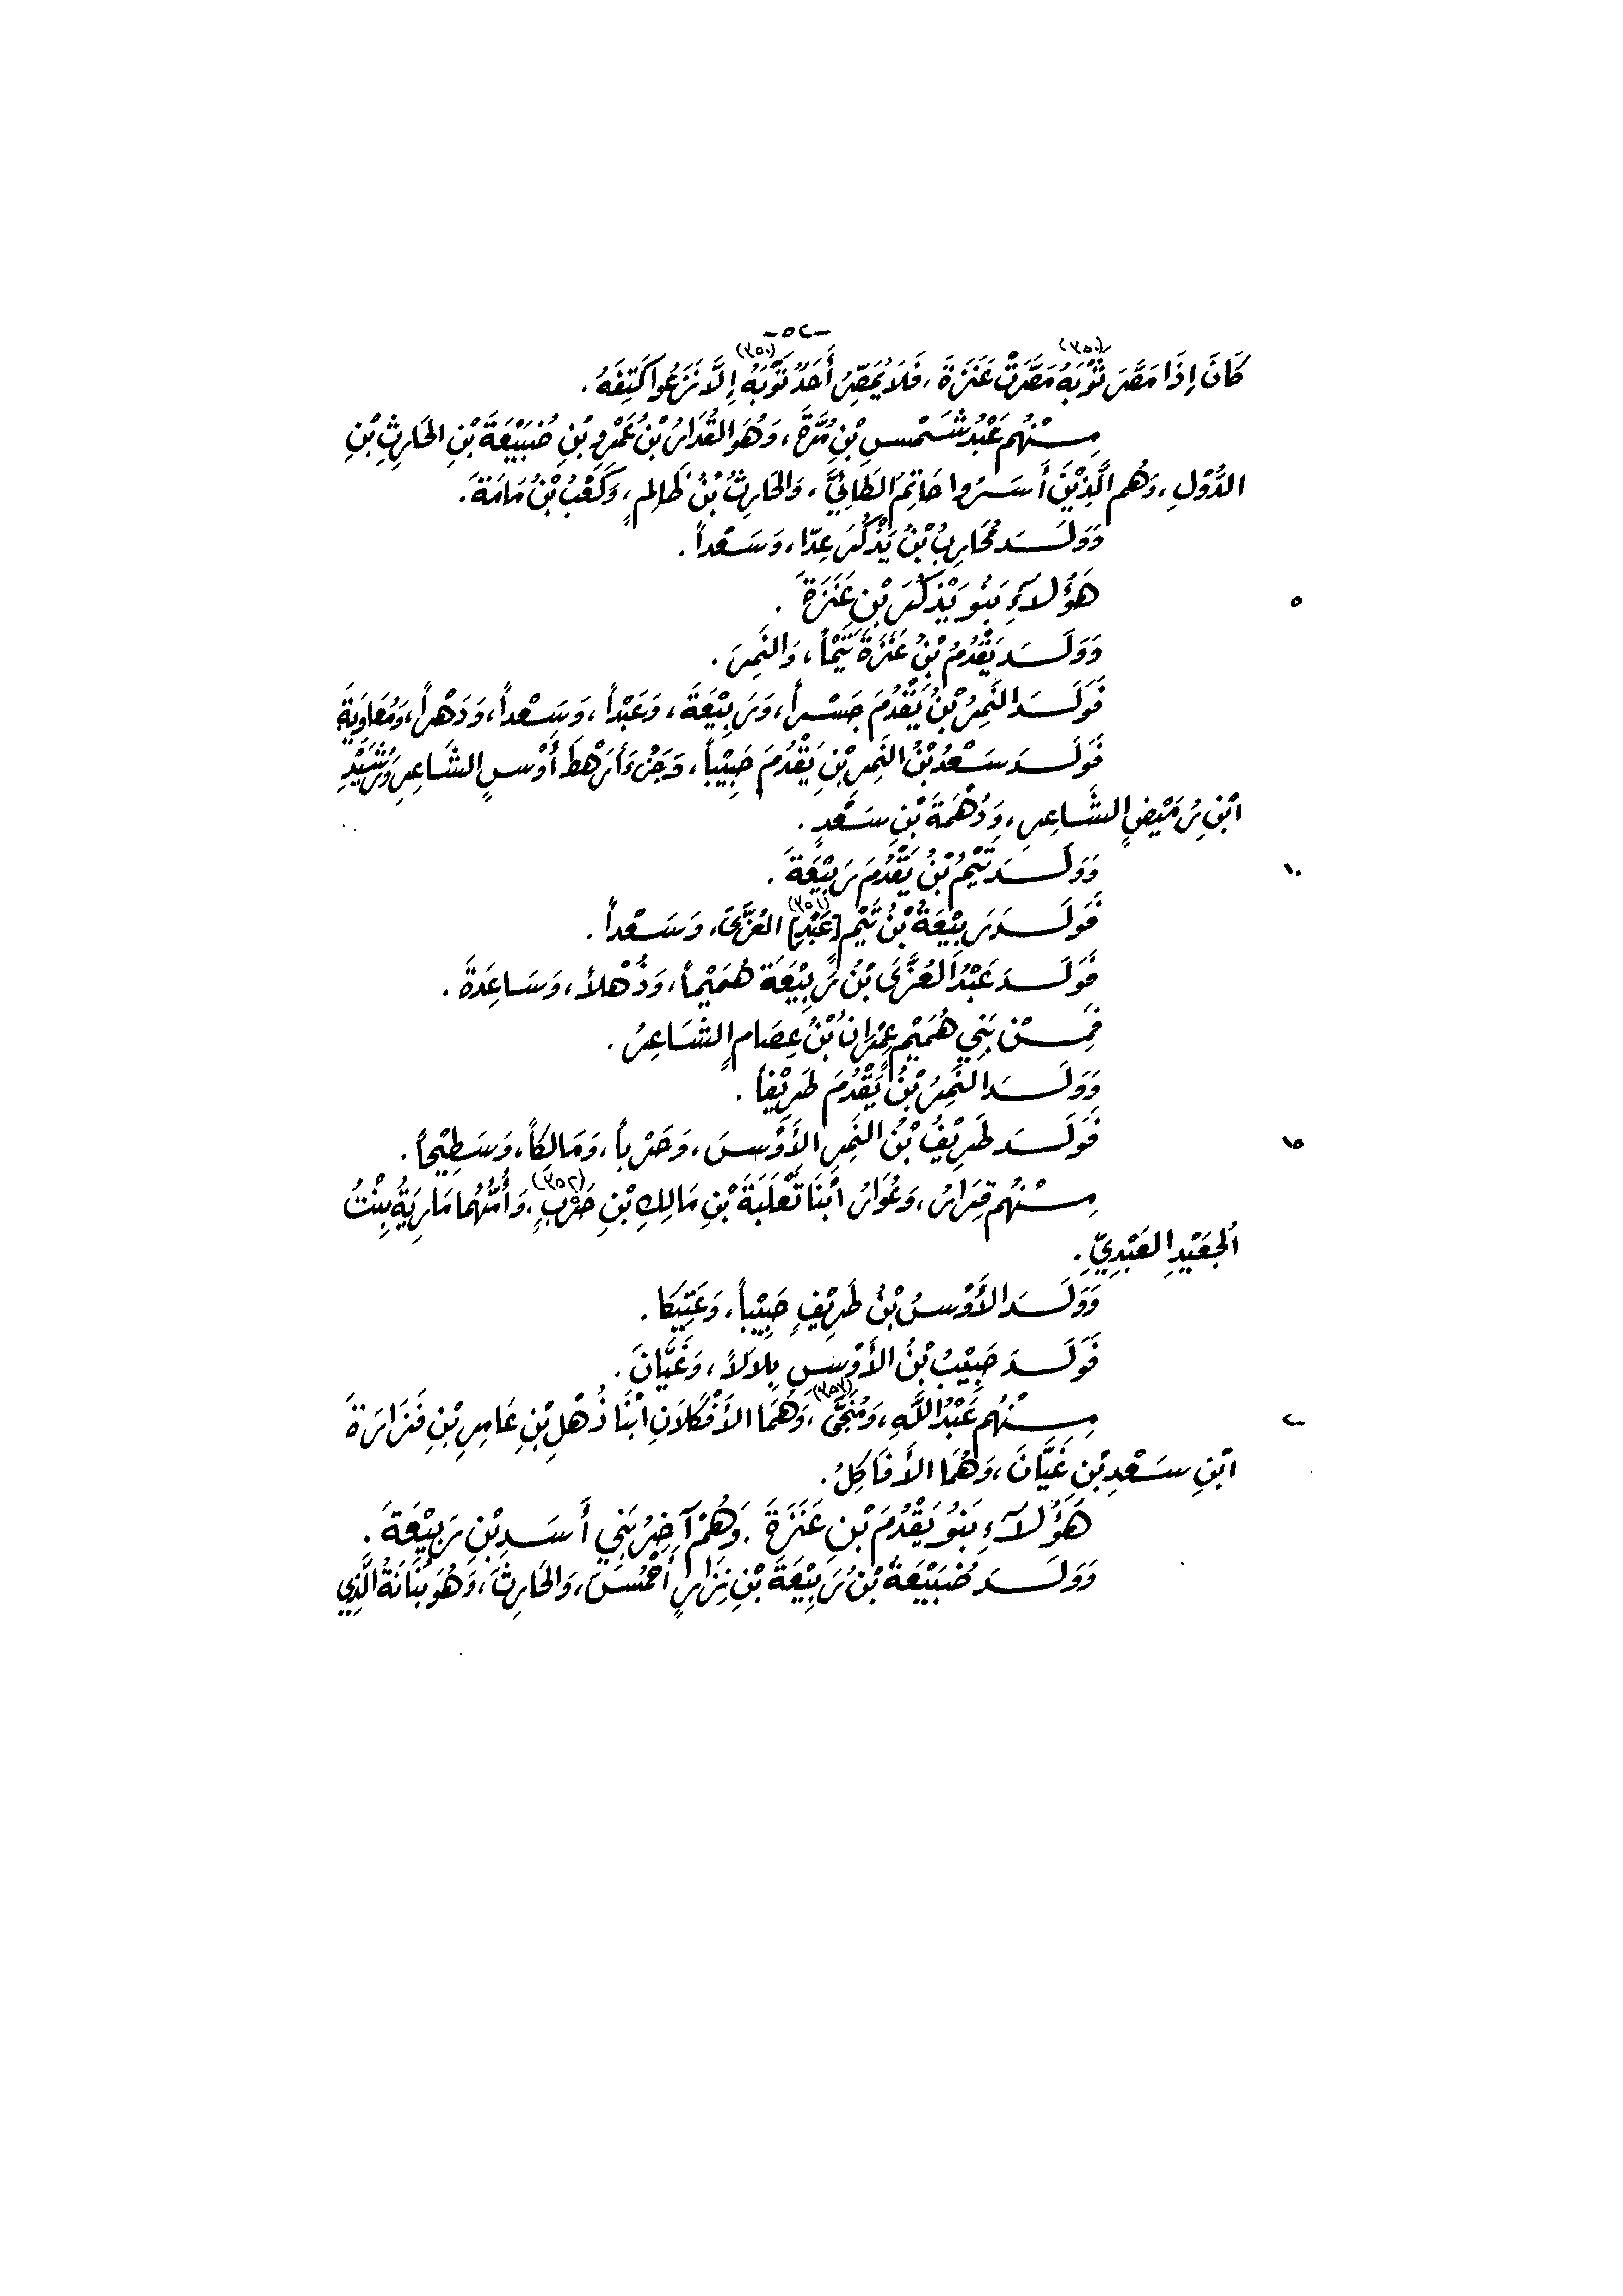 -٥٢-
كَانَ إِذَا مَصَّرَ ثَوْبَهُ (٣٥٠) مَصَّرَتْ عَنَزَةُ، فَلَا يُمَصِّرُ أَحَدٌ ثَوْبَهُ (٣٥٠) إِلَّا نَزَعُوا كَتِفَهُ.
مِنْهُم عَبْدُ شَمْسِ بْنِ مُرَّةَ، وَهُوَ القُدَارُ بْنُ عَمْرِو بْنِ ضُبَيْعَةَ بْنِ الحَارِثِ بْنِ
الدُّوْلِ، وَهُم الَّذِيْنَ أَسَرُوا حَاتِمَ الطَائِيَّ، وَالحَارِثُ بْنُ ظَالِمٍ، وَكَعْبُ بْنُ مَامَةَ.
وَوَلَدَ مُحَارِبُ بْنُ يَذْكُرَ عِدّا، وَسَعْداً.
هَؤُلَاءِ بَنُو يَذْكُرَ بْنِ عَنَزَةَ.
٥
وَوَلَدَ يَقْدُمُ بْنُ عَنَزَةَ تَيْماً، وَالنَّمِرَ.
فَوَلَدَ النَّمِرُ بْنُ يَقْدُمَ جَسْراً، وَرَبِيْعَةَ، وَعَبْداً، وَسَعْداً، وَدَهْراً، وَمُعَاوِيَةَ
فَوَلَدَ سَعْدُ بْنُ النَّمِرِ بْنِ يَقْدُمَ حَبِيْباً، وَجَزْءَ رَهْطَ أَوْسٍ الشَاعِرِ وَرُشَيْدِ
ابْنِ رُمَيْضٍ الشَّاعِرِ، وَدُهْمَةَ بْنِ سَعْدٍ.
وَوَلَدَ تَيْمُ بْنُ يَقْدُمَ رَبِيْعَةَ.
١٠
فَوَلَدَ رَبِيْعَةُ بْنُ تَيْمٍ [عَبْدَ] (٣٥١) العُزَّى، وَسَعْداً.
فَوَلَدَ عَبْدُ العُزَّى بْنُ رَبِيْعَةَ هُمَيْماً، وَذُهْلاً، وَسَاعِدَةَ.
فَمِنْ بَنِي هُمَيْمٍ عِمْرَانُ بْنُ عِصَامٍ الشَّاعِرُ.
وَوَلَدَ النَّمِرُ بْنُ يَقْدُمَ طَرِيْفاً.
فَوَلَدَ طَرِيْفُ بْنُ النَّمِرِ الأَوْسَ، وَحَرْباً، وَمَالِكاً، وَسَطِيْحاً.
١٥
مِنْهُم قِرَارُ، وَعُوَارُ ابْنَا ثَعْلَبَةَ بْنِ مَالِكِ بْنِ حَرْبٍ (٣٥٢)، وَأُمُّهُمَا مَارِيَةُ بِنْتُ
الجُعَيْدِ العَبْدِيِّ.
وَوَلَدَ الأَوْسُ بْنُ طَرِيْفٍ حَبِيْباً، وَعَتِيكَا.
فَوَلَدَ حَبِيْبُ بْنُ الأَوْسِ بِلَالاً، وَغَيَّانَ.
مِنْهُم عَبْدُ اللَّهِ، وَمُنَجَّى (٣٥٣)، وَهُمَا الأَفْكَلَانِ ابْنَا ذُهْلِ بْنِ عَامِرِ بْنِ فَزَارَةَ
٢٠
ابْنِ سَعْدِ بْنِ غَيَّانَ، وَهُمَا الأَفَاكِلُ.
هَؤُلَاءِ بَنُو يَقْدُمَ بْنِ عَنَزَةَ. وَهُمْ آخِرُ بَنِي أَسَدِ بْنِ رَبِيْعَةَ.
وَوَلَدَ ضُبَيْعَةُ بْنُ رَبِيْعَةَ بْنِ نِزَارٍ أَحْمُسَ، وَالحَارِثَ، وَهُوَ بُنَانَةُ الَّذِي